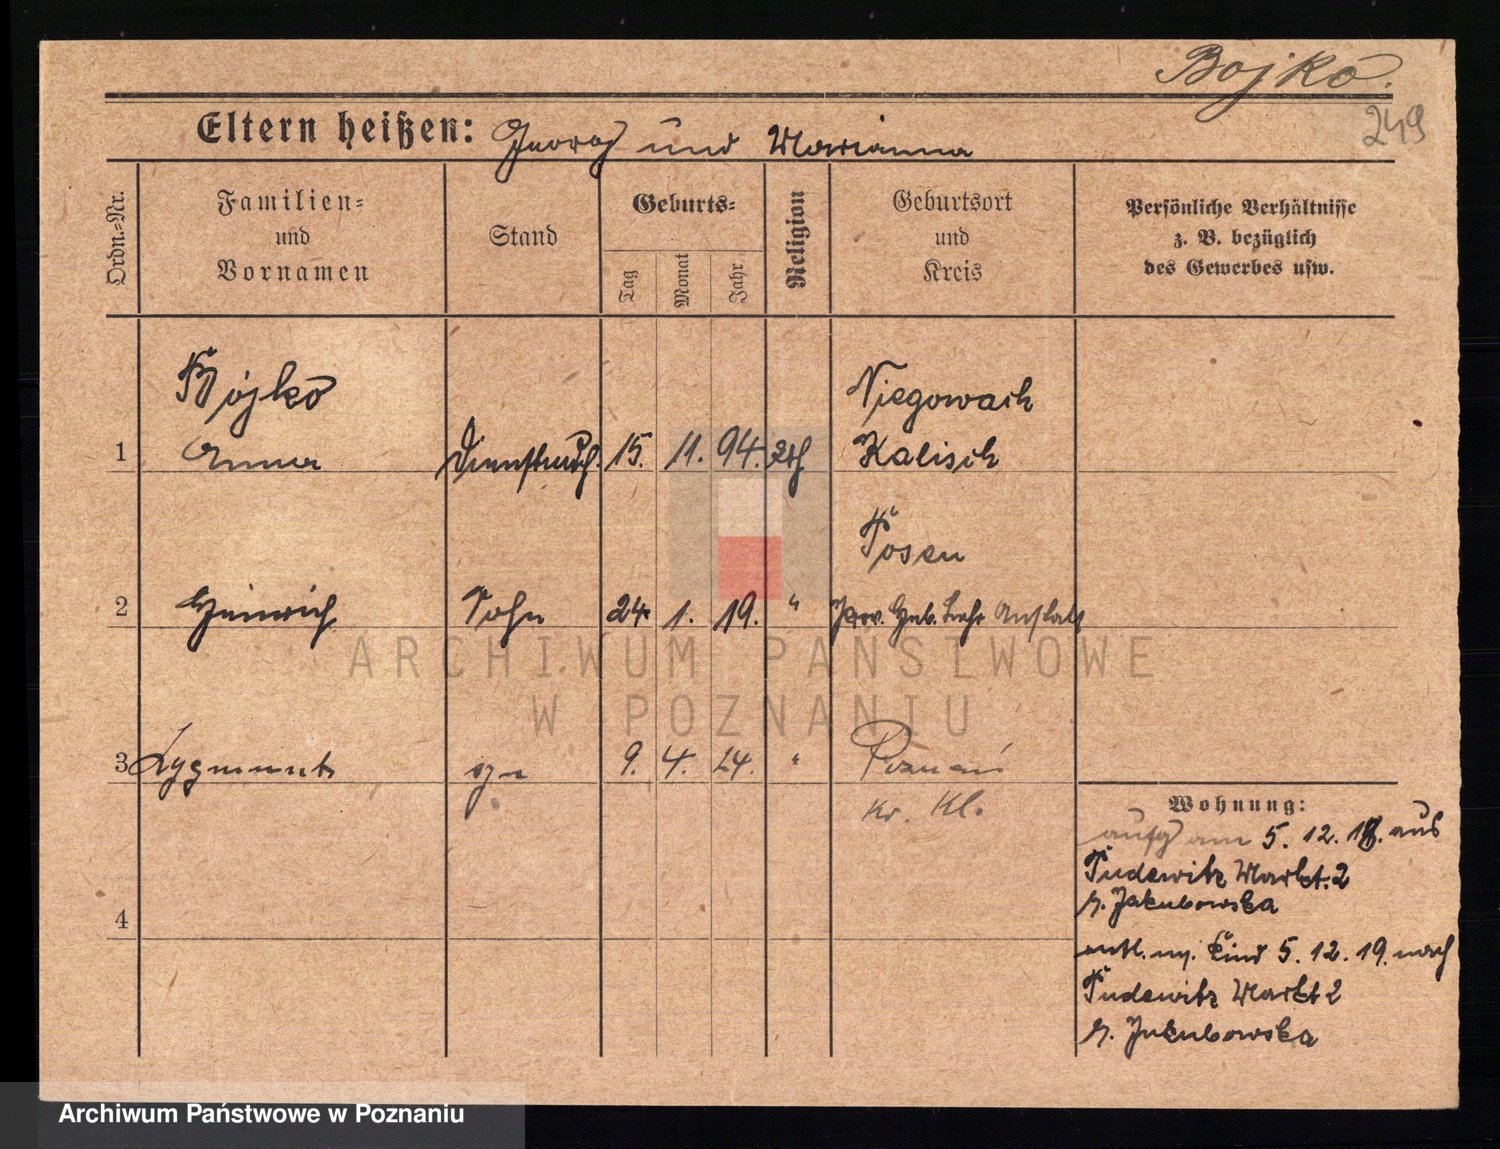 Bojko.
249
Eltern heißen: Georg und Marianna
Ordn.-Nr.
Familien-
und
Vornamen
Stand
Geburts-
Tag
Monat
Jahr
Religion
Geburtsort
und
Kreis
Persönliche Verhältnisse
z. B. bezüglich
des Gewerbes usw.
Bojko
Niegowach
1 Anna 15. 11. 94. Kalisch
Posen
2 Heinrich Sohn 24. 1. 19. " Prov. Heb. Lehr Anstalt
3 Zygmunt syn 9. 4. 24. " Poznań
kr. Kl.
4
Wohnung:
aufg am 5. 12. 18. aus
Pudewitz Markt. 2
b. Jakubowska
entl. m. Kind 5. 12. 19. nach
Pudewitz Markt 2
b. Jakubowska
ARCHIWUM PAŃSTWOWE
W POZNANIU
Archiwum Państwowe w Poznaniu